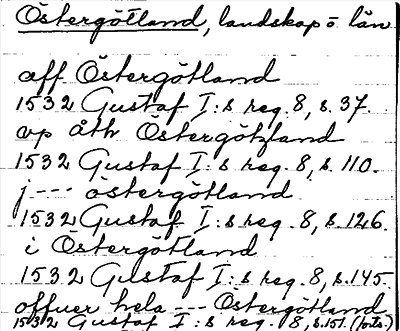 Östergötland, landskap o. län
aff Östergötland
1532 Gustaf I:s reg. 8, s. 37.
vp åth Östergötland
1532 Gustaf I:s reg. 8, s. 110.
j --- östergötland
1532 Gustaf I:s reg. 8, s. 126.
i Östergötland
1532 Gustaf I:s reg. 8, s. 145.
offuer hela --- Östergötland
1532 Gustaf I:s reg. 8, s. 151. (forts.)